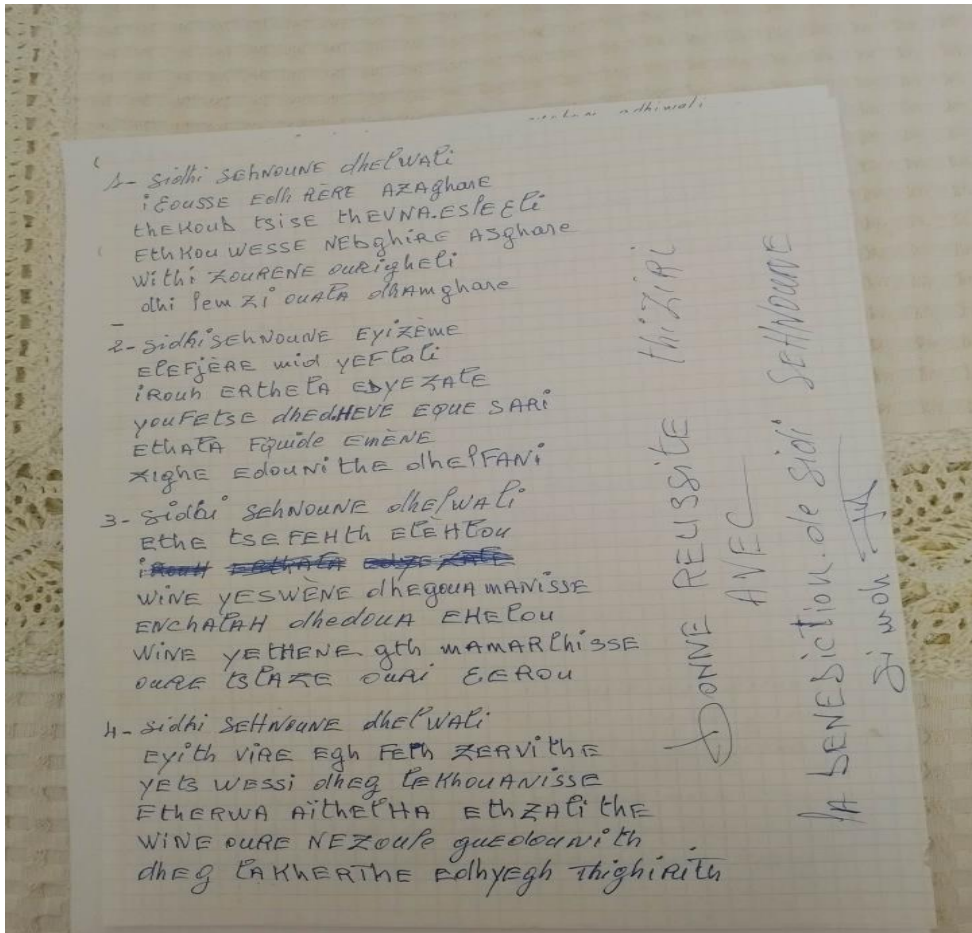 1- Sidhi SEHNOUNE dhElWAli
iEOUSSE Edh RÈRE AZAghARE
thEKOUb tSiSE thEVNA.ESlEEli
EthKou WESSE NEbghiRE ASghARE
Withi ZOURENE OURighEli
dhi lEmZi OUALA dhAmghARE
2- SidhiSEHNOUNE EYiZÈME
ElEFjÈRE mid YEFlAli
iROUh ERthElA EdYEZAlE
YOUFEtSE dhEdHEVE EQUE SARi
EthAlA FQuidE EmÈNE
ZighE EdOUNi thE dhElFANi
3- Sidhi SEHNOUNE dhElWAli
EthE tSEFEHth ElÈHlOU
WiNE YESWÈNE dhEgOUA mANiSSE
ENChAlAH dhEdOUA EHElOU
WiNE YEthENE gth mAmARAbiSSE
OURE tSlAZE OURi EEROU
4- Sidhi SEHNOUNE dhElWAli
EYith ViRE Egh FElh ZERVithE
YEtS WESSi dhEg lEKhOUANiSSE
EthERWA AïthElHA EthZAlithE
WiNE OURE NEZOUlE guEdOuNith
dhEg lAKhERThE EdhYEgh ThighiRith
DONNE REUSSitE thiZiRi
AVEC
lA bENEdiCtiON.dE Sidi SEHNOUNE
Si moh